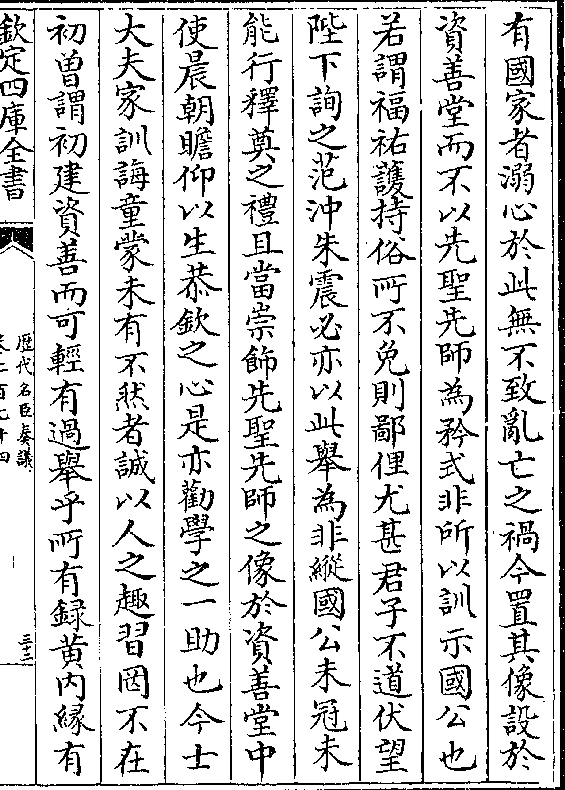 有國家者溺心於此無不致亂亡之禍今置其像設於
資善堂而不以先聖先師為矜式非所以訓示國公也
若謂福祐護持俗所不免則鄙俚尤甚君子不道伏望
陛下詢之范沖朱震必亦以此舉為非縱國公未冠未
能行釋奠之禮且當崇飾先聖先師之像於資善堂中
使晨朝瞻仰以生恭欽之心是亦勸學之一助也今士
大夫家訓誨童蒙未有不然者誠以人之趣習罔不在
初曽謂初建資善而可輕有過舉乎所有録黄内縁有
欽定四庫全書
歴代名臣奏議
卷二百七十四
三十二